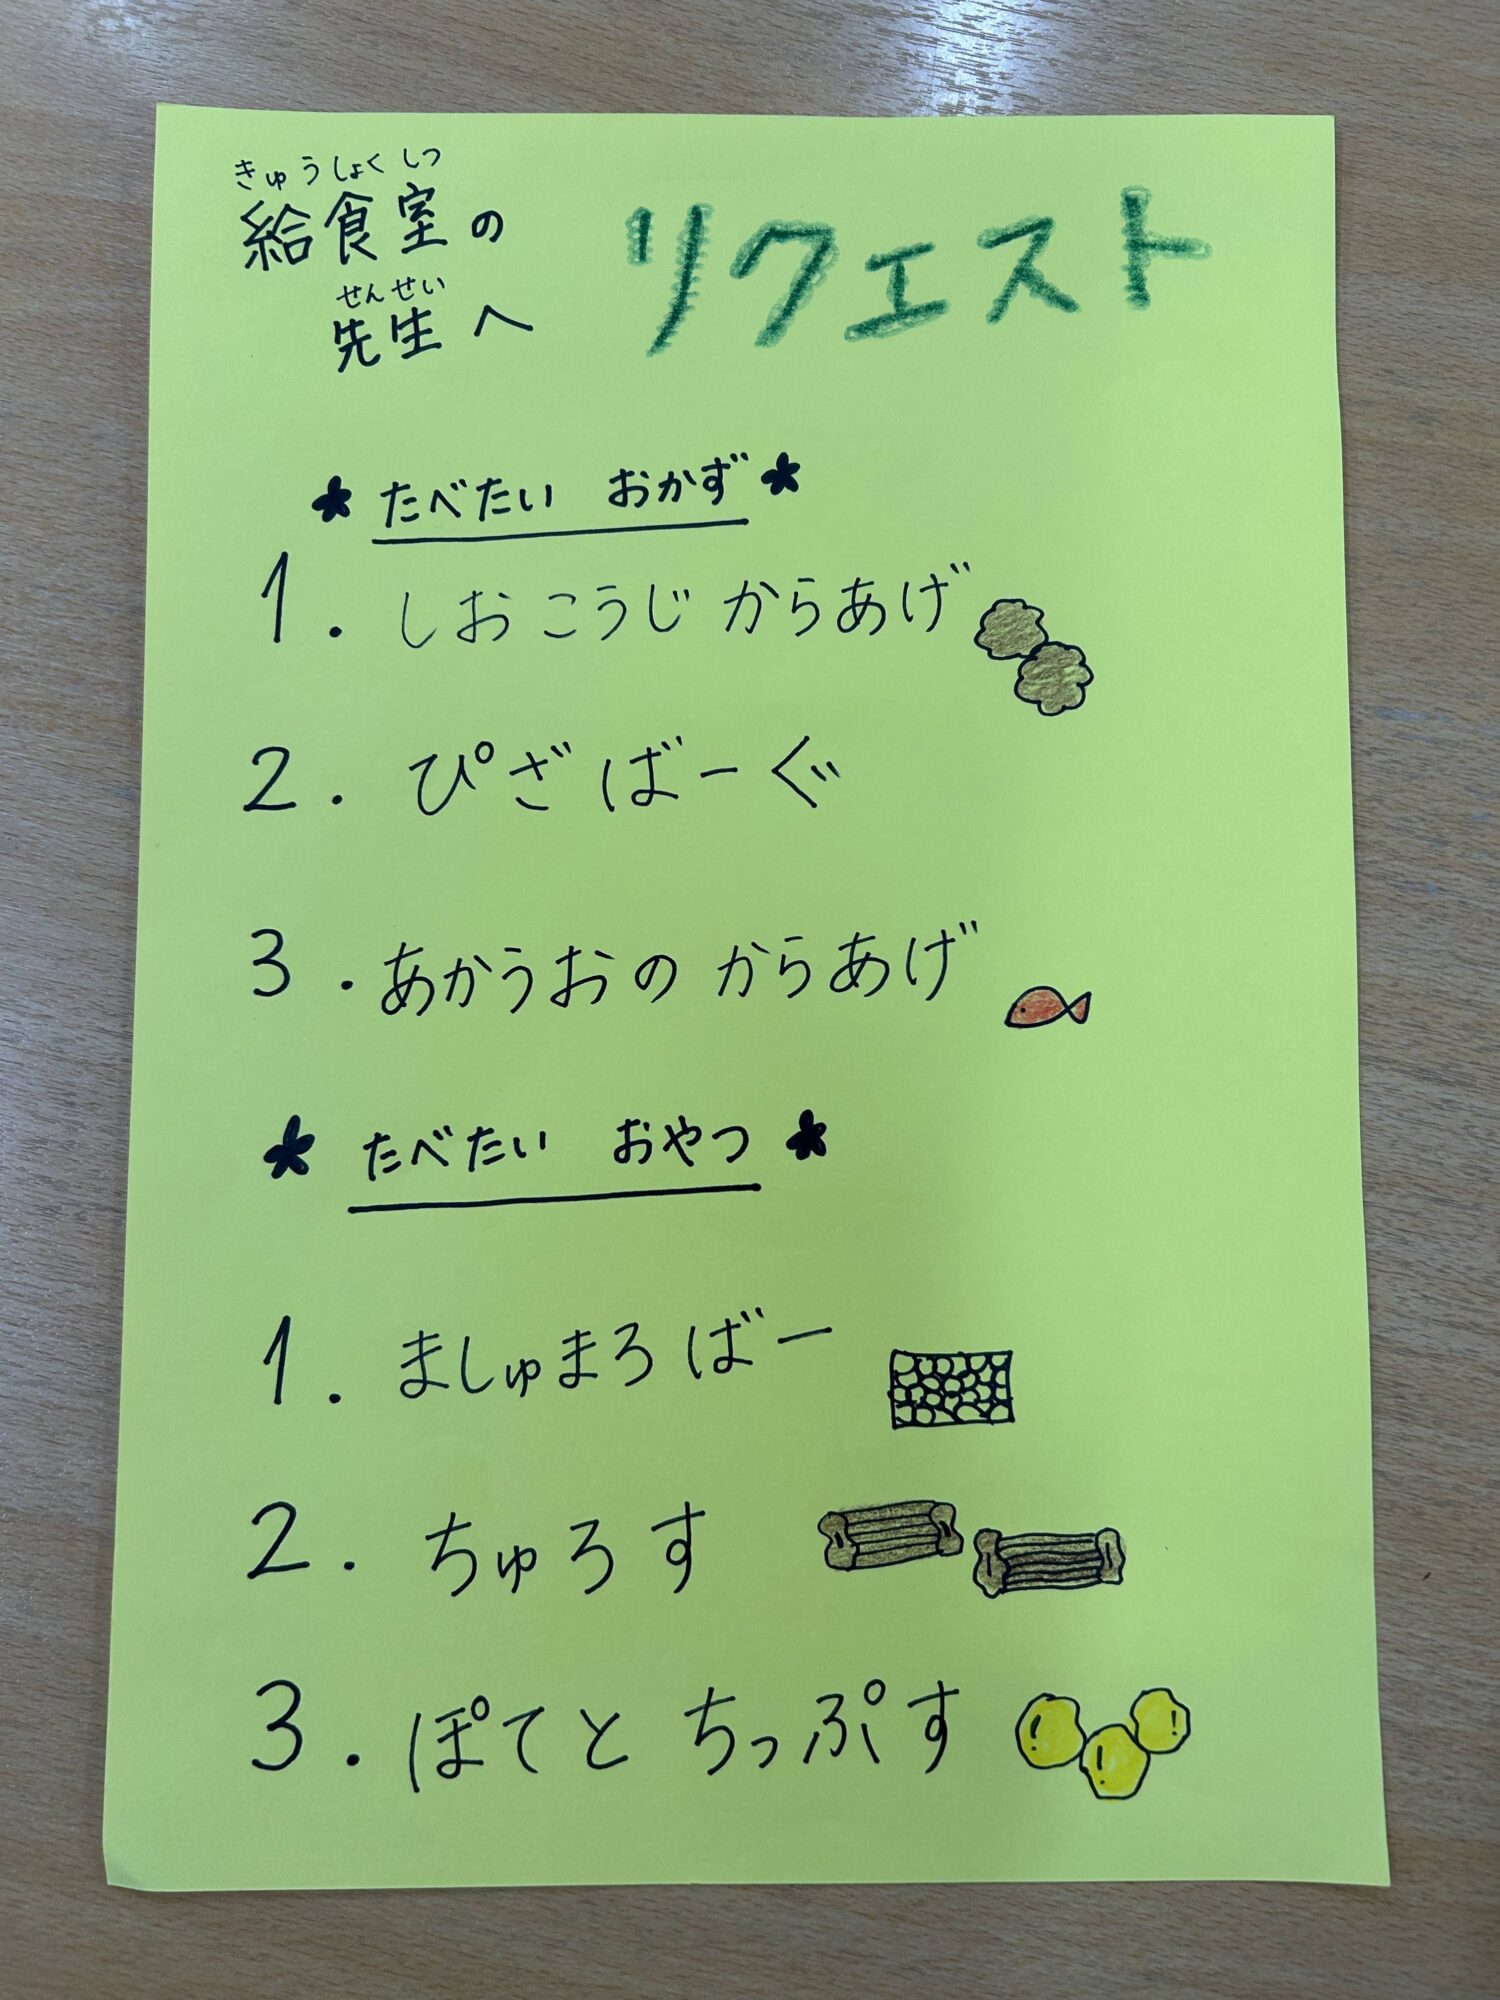 きゅうしょくしつ
給食室の
せんせい
先生へ
リクエスト
たべたい おかず
1. しおこうじ からあげ
2. ぴざばーぐ
3. あかうおの からあげ
たべたい おやつ
1. ましゅまろばー
2. ちゅろす
3. ぽてと ちっぷす